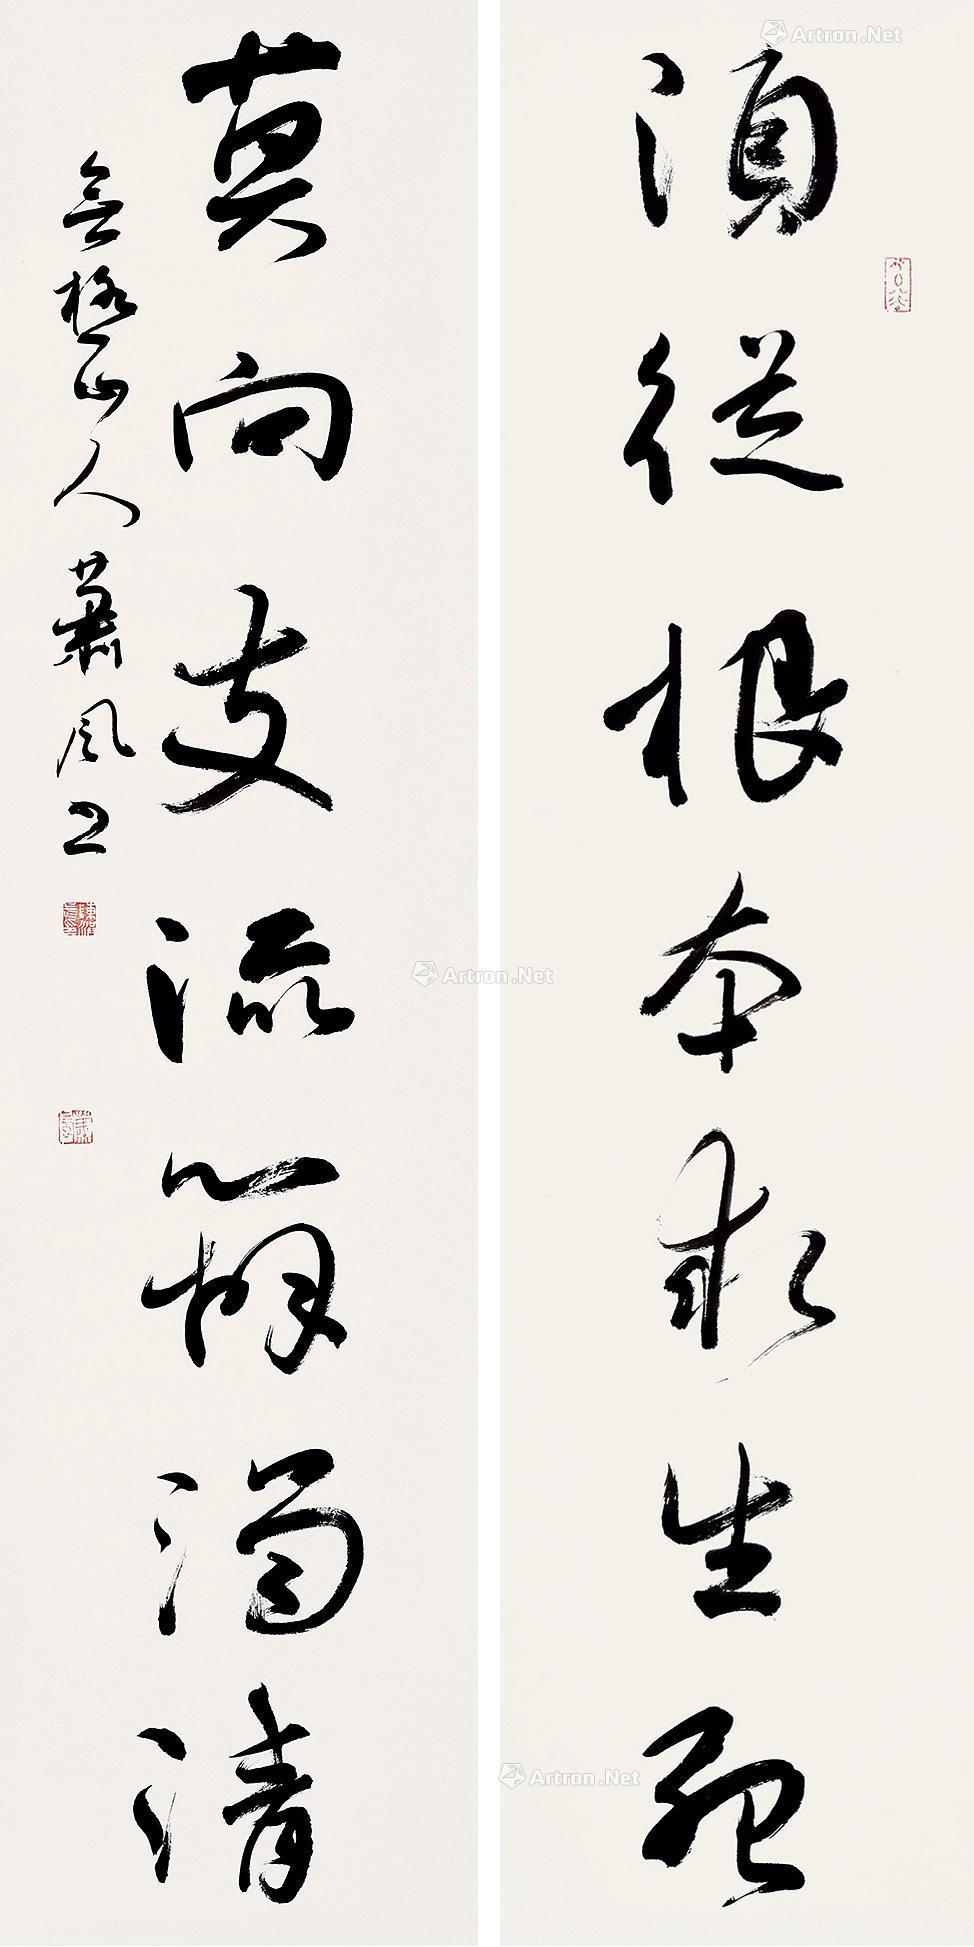 須從根本求生死
莫向支流辨濁清
無極山人蕭風
Artron.Net
Artron.Net
Artron.Net